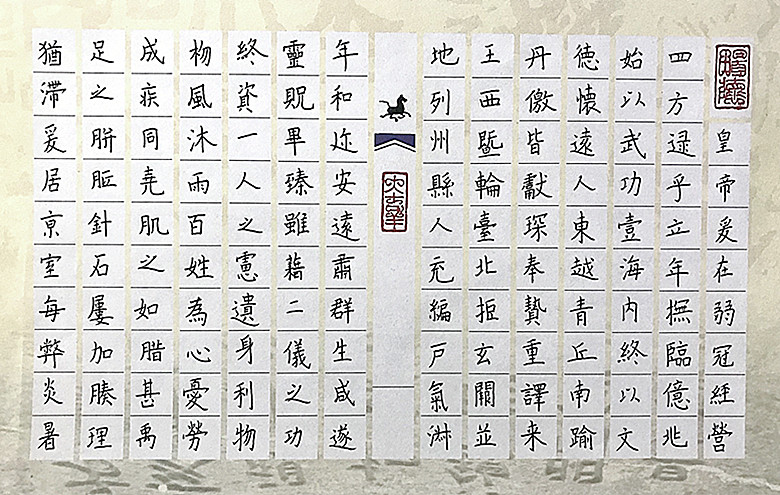 皇帝爰在弱冠經營
四方逮乎立年撫臨億兆
始以武功壹海内終以文
德懷遠人東越青丘南踰
丹儌皆獻琛奉贄重譯来
王西曁輪臺北拒玄闕並
地列州縣人充編戶氣淑
年和迩安遠肅群生咸遂
靈貺畢臻雖藉二儀之功
終資一人之慮遺身利物
櫛風沐雨百姓為心憂勞
成疾同堯肌之如腊甚禹
足之胼胝針石屢加腠理
猶滯爰居京室每弊炎暑